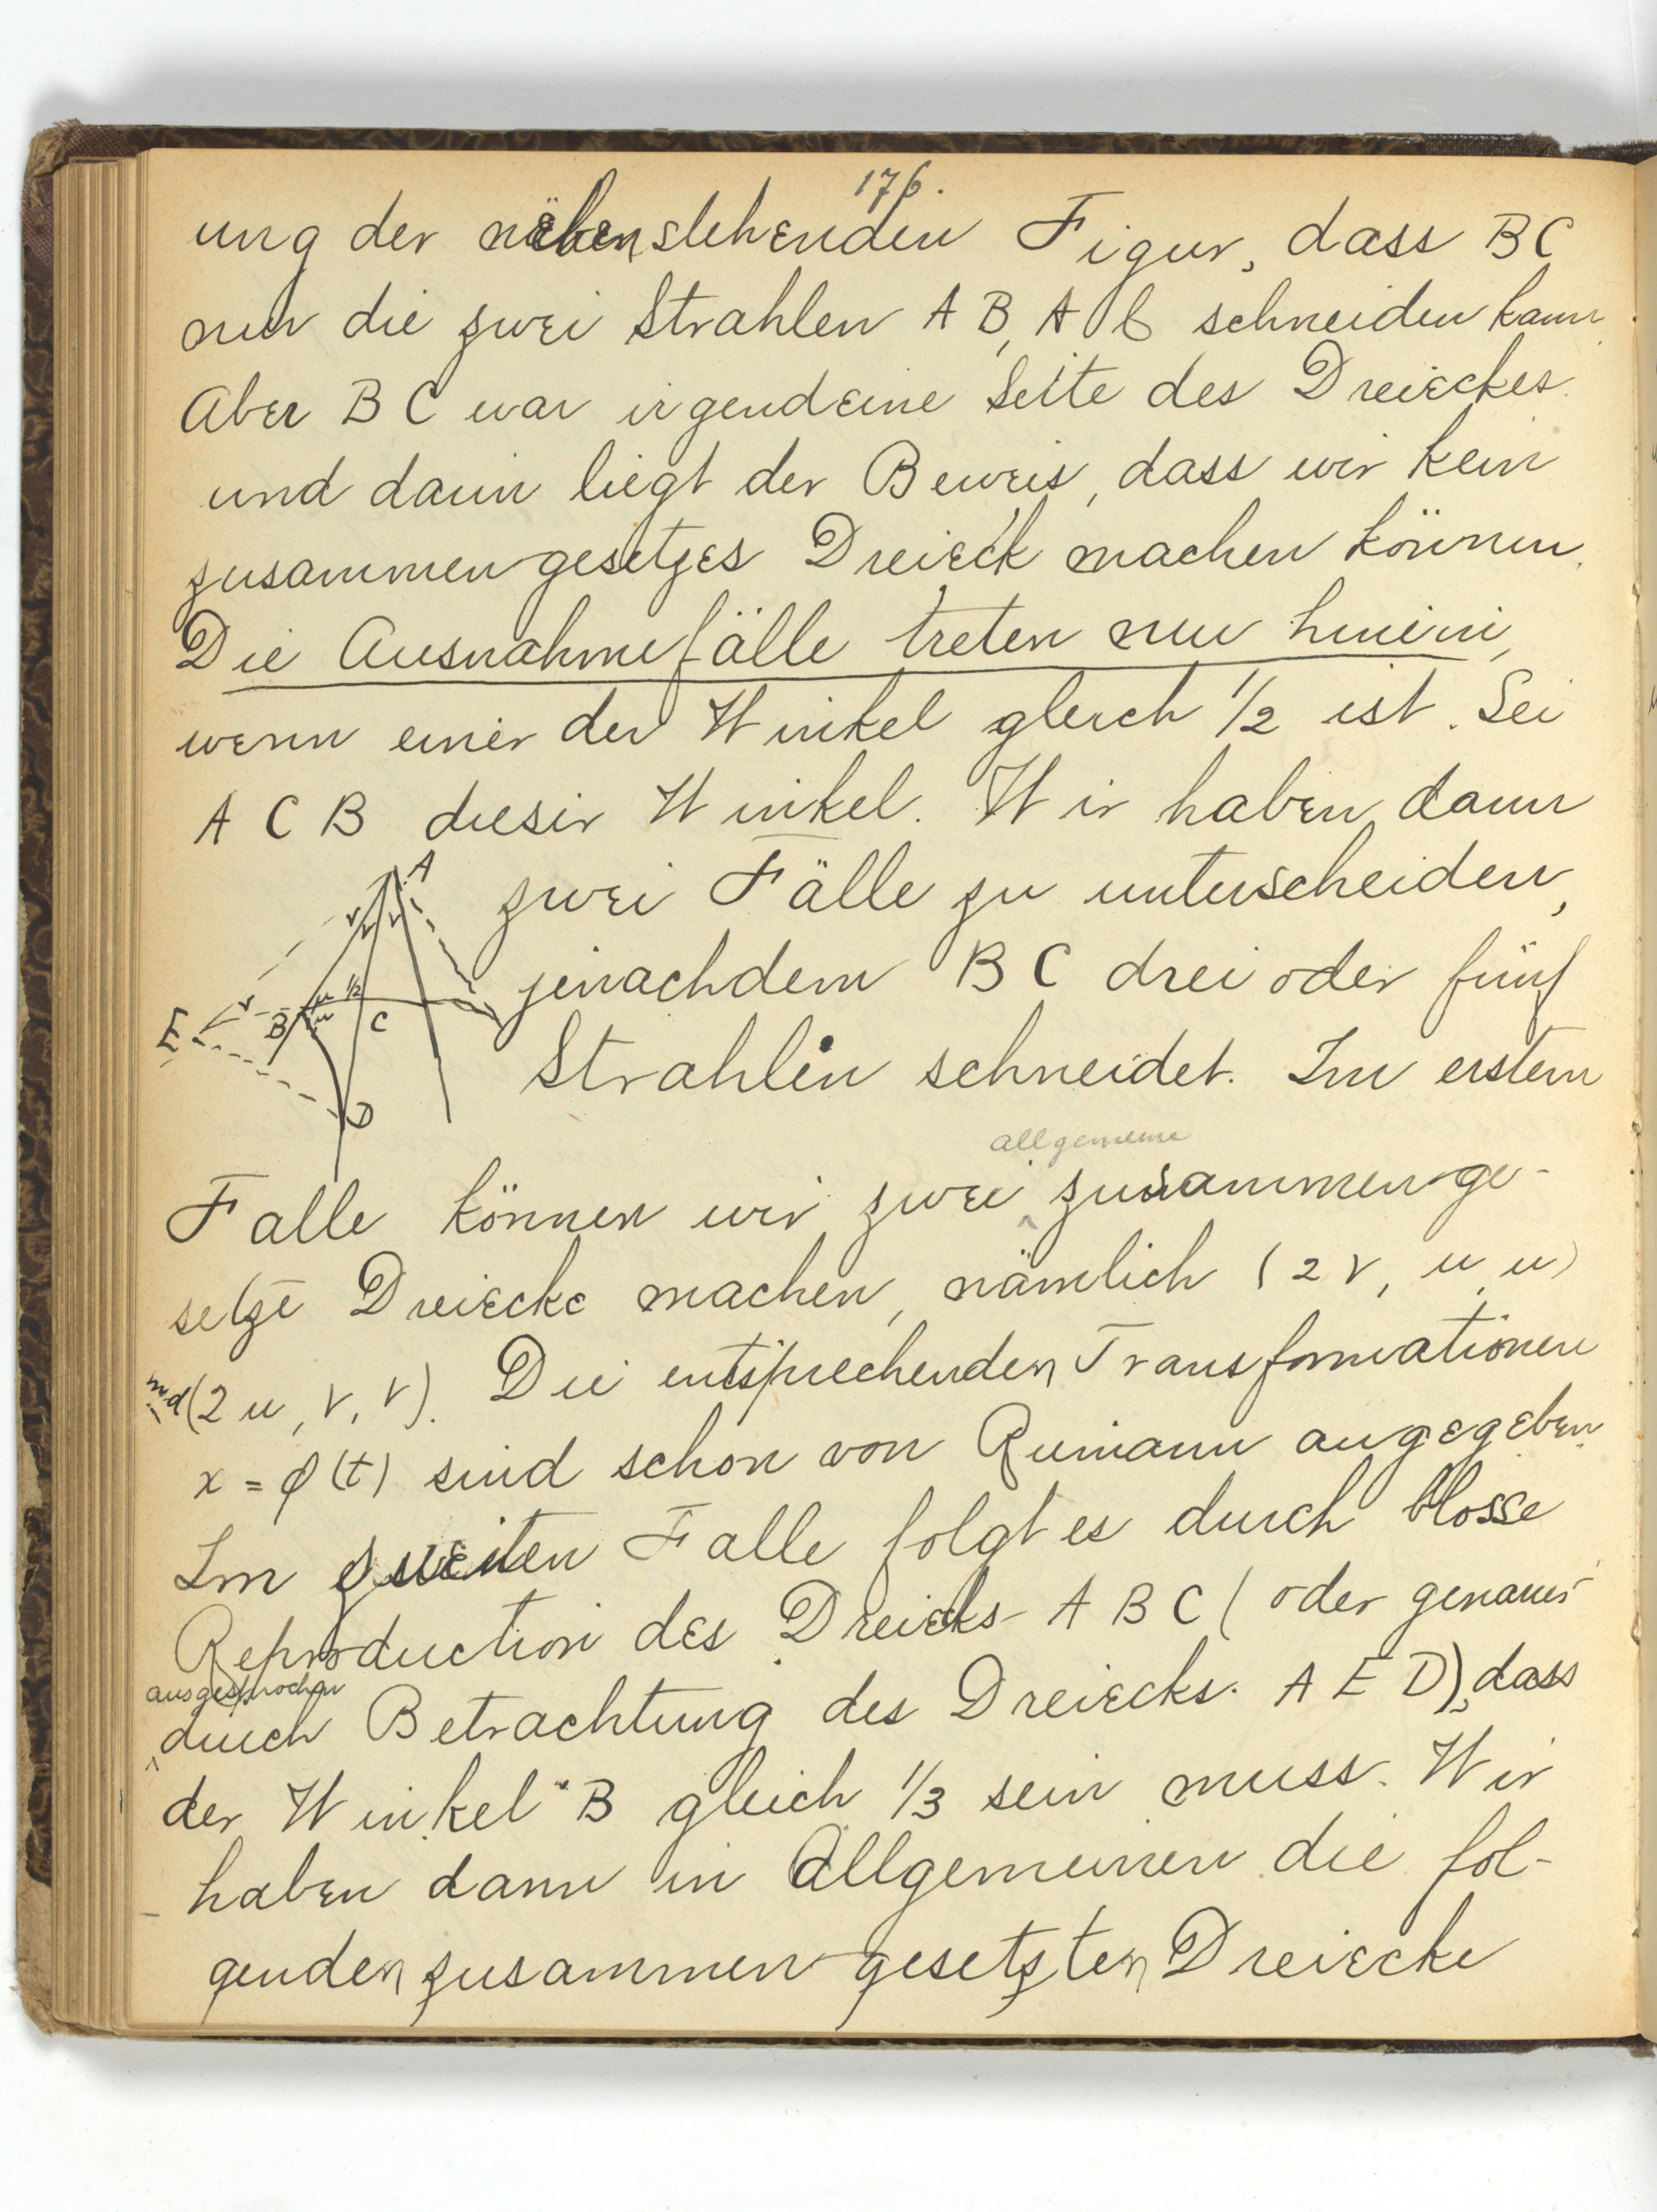 176.
ung der nebenstehenden Figur, dass BC
nur die zwei Strahlen AB, AC schneiden kann.
Aber BC war irgendeine Seite des Dreieckes
und darin liegt der Beweis, dass wir kein
zusammengesetzes Dreieck machen können.
Die Ausnahmefälle treten nun hinein,
wenn einer der Winkel gleich 1/2 ist. Sei
ACB dieser Winkel. Wir haben dann
zwei Fälle zu unterscheiden,
jenachdem BC drei oder fünf
Strahlen schneidet. Im erstem
A
v v v
E v B u 1/2 u C
D
allgemeine
Falle können wir zwei zusammenge-
setze Dreiecke machen, nämlich (2v, u, u)
und (2u, v, v). Die entsprechenden Transformationen
x = φ(t) sind schon von Riemann angegeben.
Im zweiten Falle folgt es durch blosse
Reproduction des Dreiecks ABC (oder genauer
ausgesprochen
durch Betrachtung des Dreiecks AED), dass
der Winkel B gleich 1/3 sein muss. Wir
haben dann in Allgemeinen die fol-
genden zusammengesetzten Dreiecke